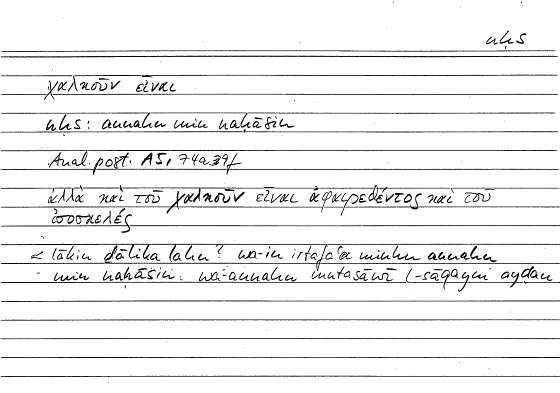 nḥs
χαλκοῦν εἶναι
nḥs: annahu min naḥāsin
Anal. post. A5, 74a39f
ἀλλὰ καὶ τοῦ χαλκοῦν εἶναι ἀφαιρεθέντος καὶ τοῦ
ἰσοσκελές
lākin ḏālika lahu? wa-in irtafaʿa minhu annahu
min naḥāsin wa-annahu mutasāwī l-sāqayni ayḍan